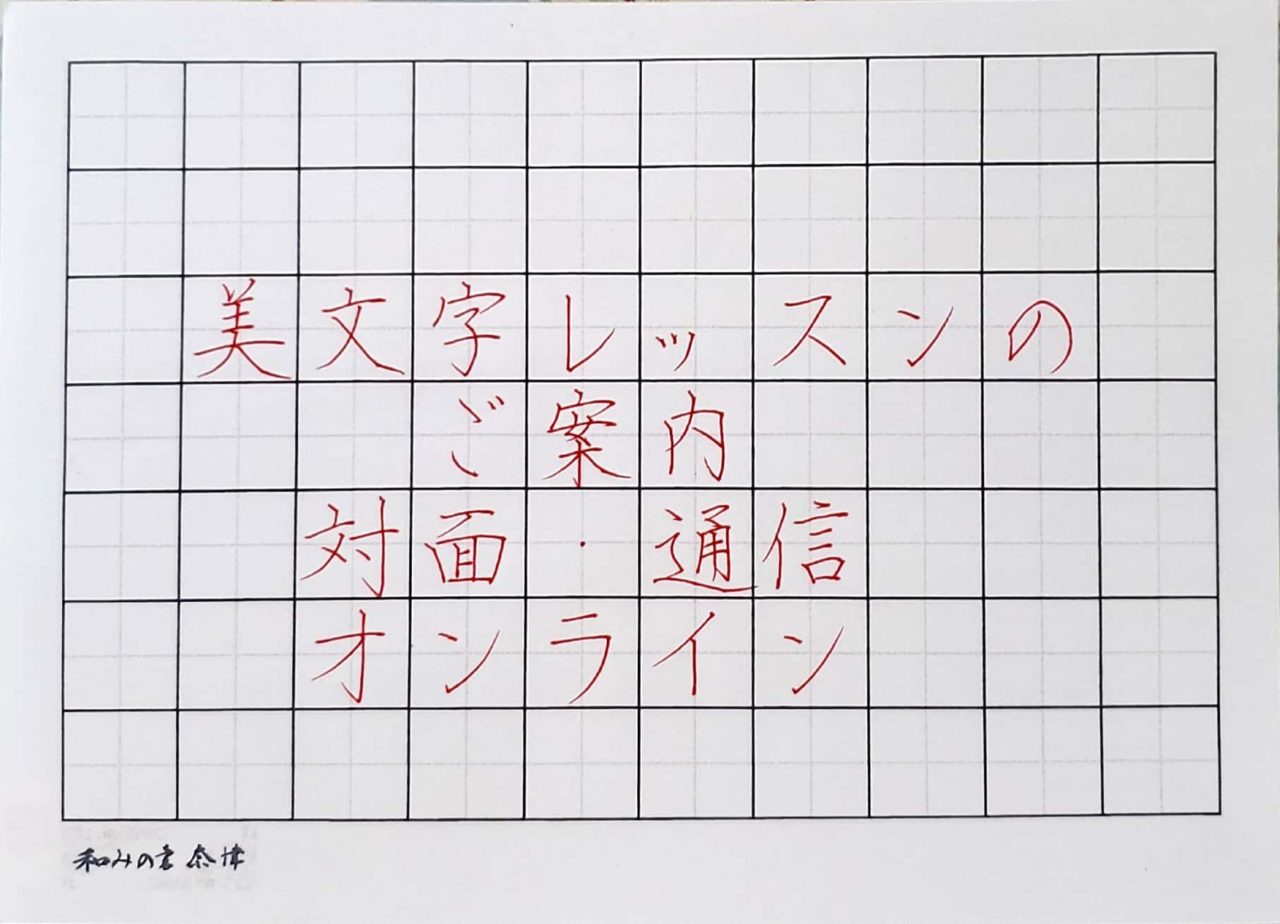 美文字レッスンの
ご案内
対面・通信
オンライン
和みの書